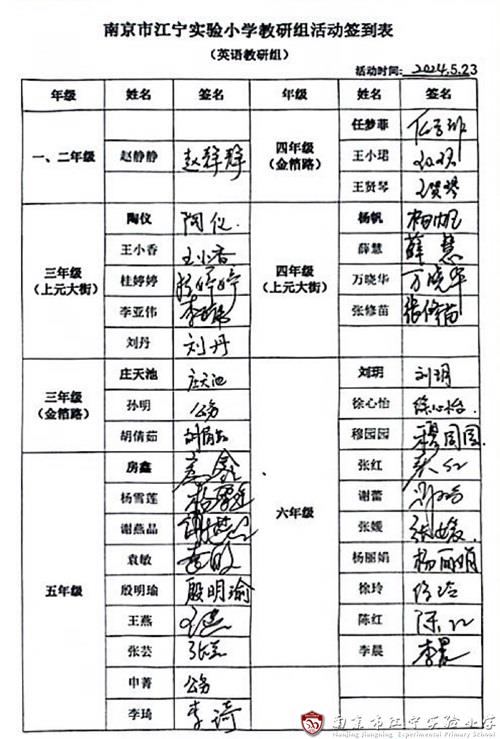 南京市江宁实验小学教研组活动签到表
(英语教研组)
活动时间: 2024.5.23
年级 姓名 签名 年级 姓名 签名
一、二年级 赵静静 赵静静
四年级 (金箔路) 任梦菲 任梦菲
王小珺
王贤琴 王贤琴
三年级 (上元大街) 陶仪 陶仪.
王小香 王小香
桂婷婷 桂婷婷
李亚伟 李亚伟
刘丹 刘丹
四年级 (上元大街) 杨帆 杨帆
薛慧 薛慧
万晓华 万晓华
张修苗 张修苗
三年级 (金箔路) 庄天池 庄天池
孙明 公务
胡倩茹 胡倩茹
五年级 房鑫 房鑫
杨雪莲 杨雪莲
谢燕晶
袁敏 袁敏
殷明瑜 殷明瑜
王燕 王燕
张芸 张芸
申菁 公务
李琦 李琦
六年级 刘玥 刘玥
徐心怡 徐心怡
穆园园 穆园园
张红 张红
谢蕾
张媛 张媛
杨丽娟 杨丽娟
徐玲 徐玲
陈红 陈红
李晨 李晨
南京市江宁实验小学
Nanjing Jiangning Experimental Primary School